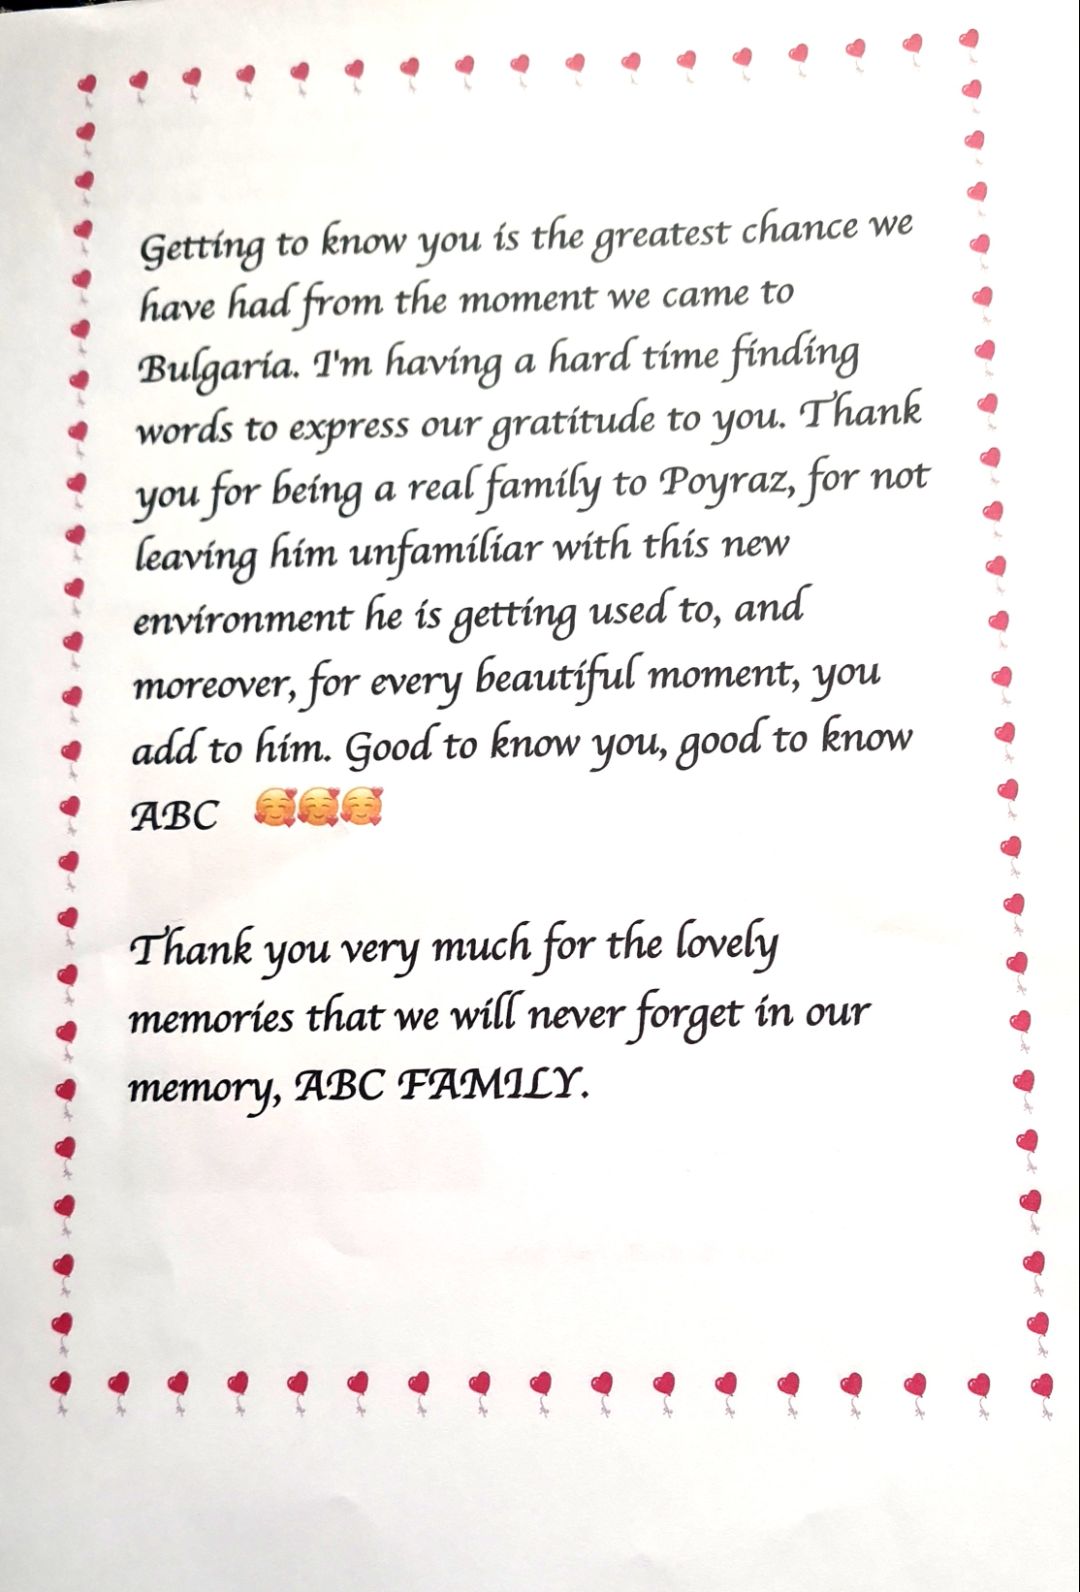 Getting to know you is the greatest chance we
have had from the moment we came to
Bulgaria. I'm having a hard time finding
words to express our gratitude to you. Thank
you for being a real family to Poyraz, for not
leaving him unfamiliar with this new
environment he is getting used to, and
moreover, for every beautiful moment, you
add to him. Good to know you, good to know
ABC 🥰🥰🥰
Thank you very much for the lovely
memories that we will never forget in our
memory, ABC FAMILY.